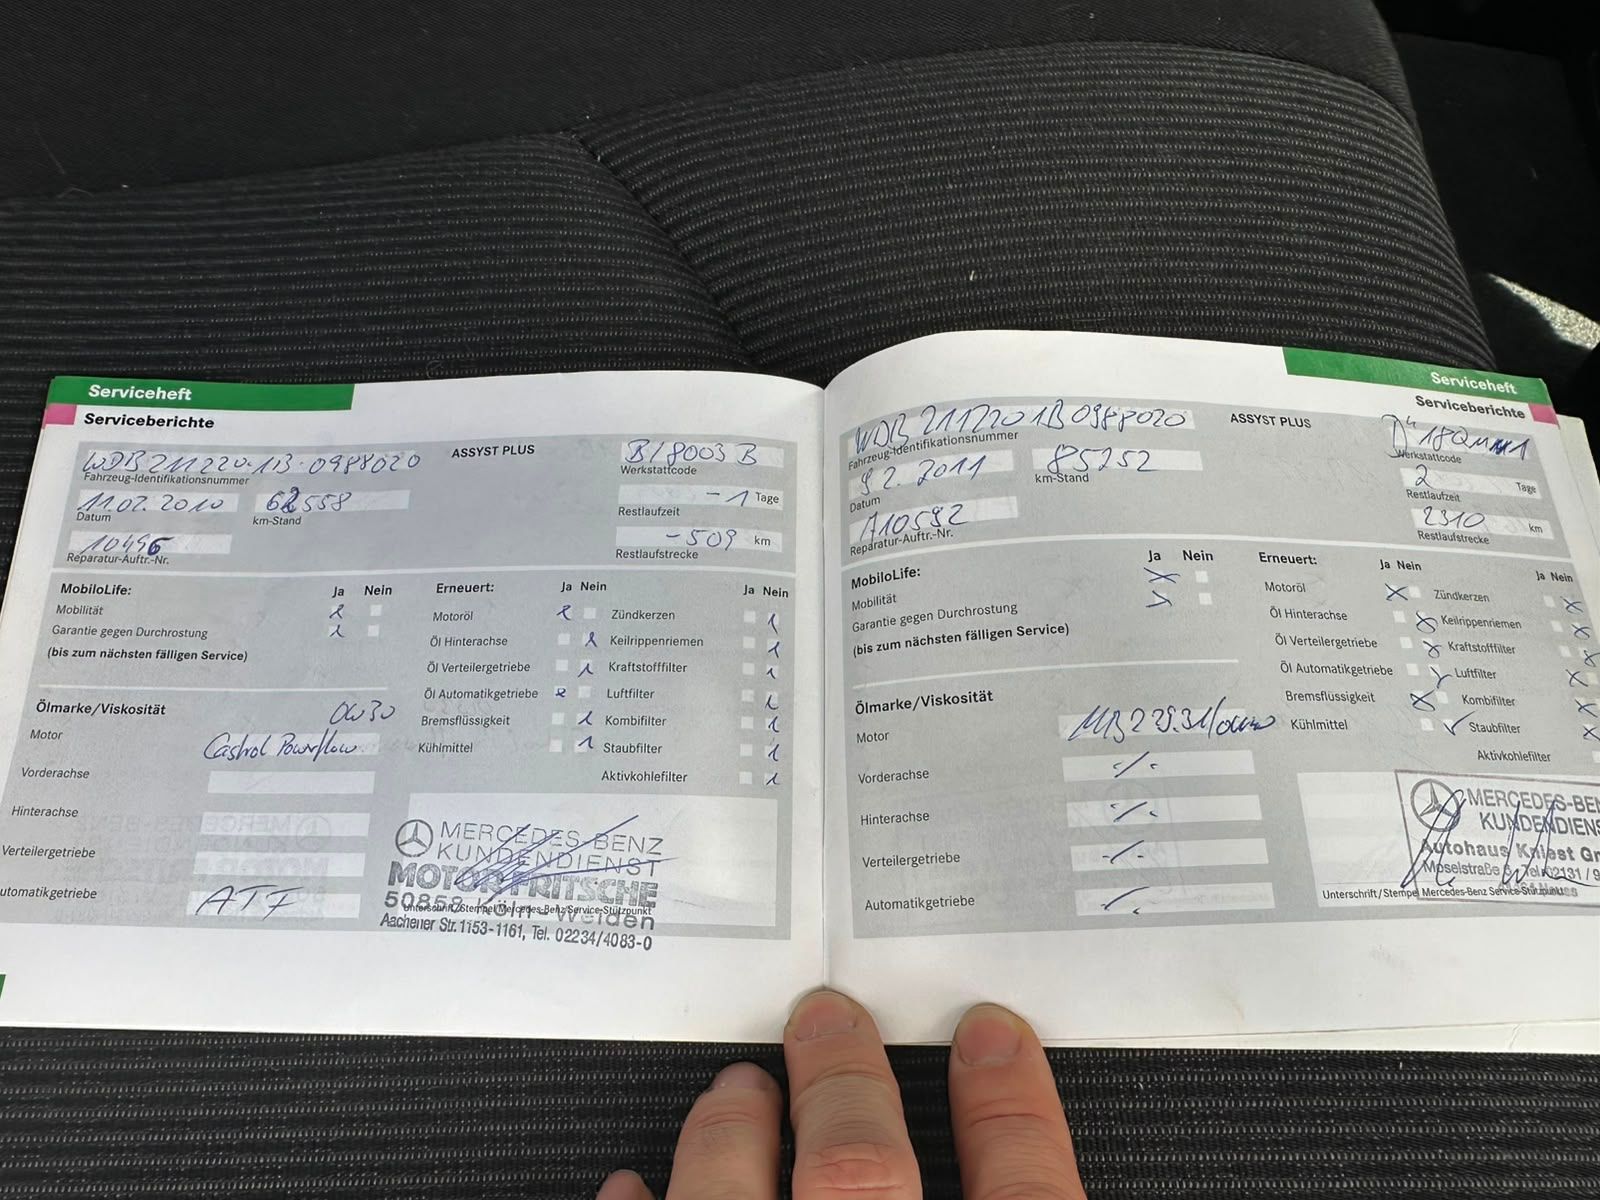 Serviceheft
Serviceberichte
WDB 211220.1B.0988020
Fahrzeug-Identifikationsnummer
ASSYST PLUS
B/8003 B
Werkstattcode
11.02.2010
Datum
62558
km-Stand
-1 Tage
Restlaufzeit
10496
Reparatur-Auftr.-Nr.
-509 km
Restlaufstrecke
MobiloLife: Ja Nein
Mobilität
Garantie gegen Durchrostung
(bis zum nächsten fälligen Service)
Erneuert: Ja Nein Ja Nein
Motoröl Zündkerzen
Öl Hinterachse Keilrippenriemen
Öl Verteilergetriebe Kraftstofffilter
Öl Automatikgetriebe Luftfilter
Bremsflüssigkeit Kombifilter
Kühlmittel Staubfilter
Aktivkohlefilter
Ölmarke/Viskosität 0W30
Motor Castrol Powerflow
Vorderachse
Hinterachse
Verteilergetriebe
utomatikgetriebe ATF
MERCEDES-BENZ
KUNDENDIENST
MOTOR FRITSCHE
50858 Köln-Weiden
Unterschrift/Stempel Mercedes-Benz Service-Stützpunkt
Aachener Str. 1153-1161, Tel. 02234/4083-0
Serviceheft
Serviceberichte
WDB 2112201B0988020
Fahrzeug-Identifikationsnummer
ASSYST PLUS
Werkstattcode
9 2. 2011
Datum
85252
km-Stand
2 Tage
Restlaufzeit
A10592
Reparatur-Auftr.-Nr.
2310 km
Restlaufstrecke
MobiloLife: Ja Nein
Mobilität
Garantie gegen Durchrostung
(bis zum nächsten fälligen Service)
Erneuert: Ja Nein Ja Nein
Motoröl Zündkerzen
Öl Hinterachse Keilrippenriemen
Öl Verteilergetriebe Kraftstofffilter
Öl Automatikgetriebe Luftfilter
Bremsflüssigkeit Kombifilter
Kühlmittel Staubfilter
Aktivkohlefilter
Ölmarke/Viskosität
Motor MB 229.31/
Vorderachse -/-
Hinterachse -/-
Verteilergetriebe -/-
Automatikgetriebe -/-
MERCEDES-BEN
KUNDENDIENS
Autohaus Kniest G
Moselstraße Tel. 02131/9
Unterschrift/Stempel Mercedes-Benz Service-Stützpunkt